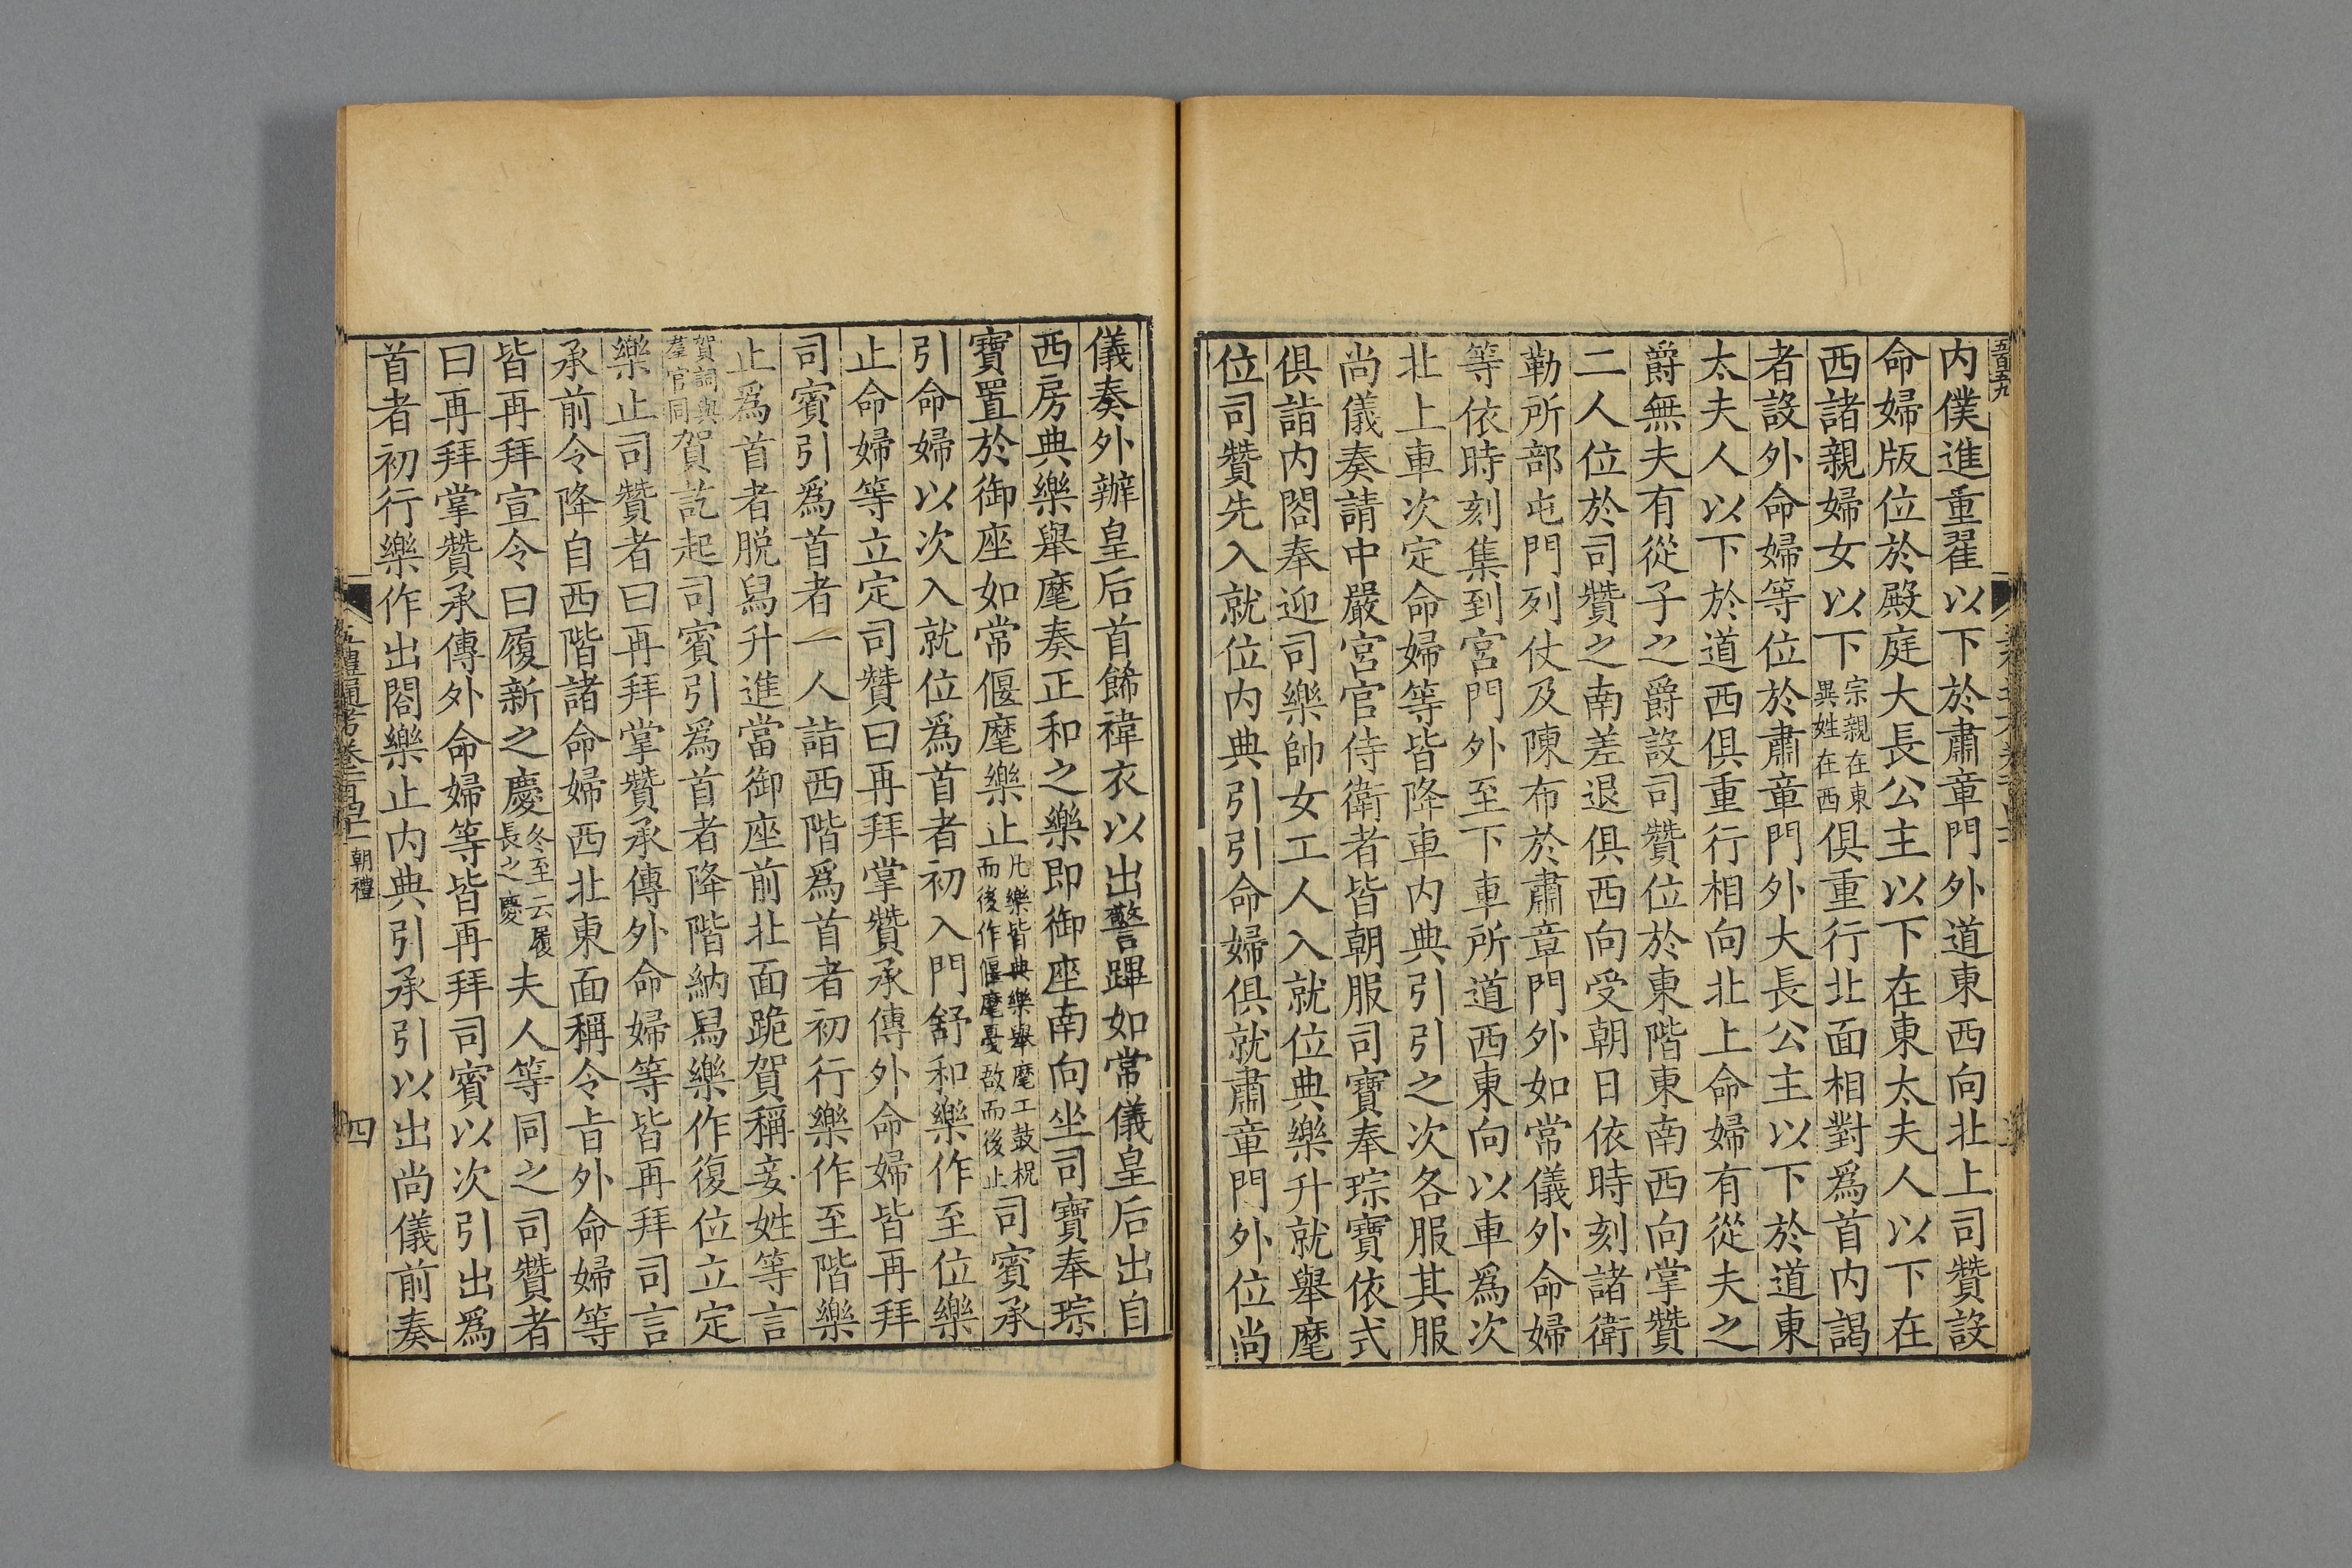 五百五九
内僕進重翟以下於肅章門外道東西向北上司贊設
命婦版位於殿庭大長公主以下在東太夫人以下在
西諸親婦女以下宗親在東異姓在西俱重行北面相對爲首内謁
者設外命婦等位於肅章門外大長公主以下於道東
太夫人以下於道西俱重行相向北上命婦有從夫之
爵無夫有從子之爵設司贊位於東階東南西向掌贊
二人位於司贊之南差退俱西向受朝日依時刻諸衛
勒所部屯門列仗及陳布於肅章門外如常儀外命婦
等依時刻集到宮門外至下車所道西東向以車爲次
北上車次定命婦等皆降車内典引引之次各服其服
尚儀奏請中嚴宮官侍衛者皆朝服司寶奉琮寶依式
俱詣内閤奉迎司樂帥女工人入就位典樂升就舉麾
位司贊先入就位内典引引命婦俱就肅章門外位尚
儀奏外辦皇后首餙褘衣以出警蹕如常儀皇后出自
西房典樂舉麾奏正和之樂即御座南向坐司寶奉琮
寶置於御座如常偃麾樂止凡樂皆典樂舉麾工鼓柷而後作偃麾戞敔而後止司賓承
引命婦以次入就位爲首者初入門舒和樂作至位樂
止命婦等立定司贊曰再拜掌贊承傳外命婦皆再拜
司賓引爲首者一人詣西階爲首者初行樂作至階樂
止爲首者脱舄升進當御座前北面跪賀稱妾姓等言
賀詞與羣官同賀訖起司賓引爲首者降階納舄樂作復位立定
樂止司贊者曰再拜掌贊承傳外命婦等皆再拜司言
承前令降自西階諸命婦西北東面稱令㫖外命婦等
皆再拜宣令曰履新之慶冬至云履長之慶夫人等同之司贊者
曰再拜掌贊承傳外命婦等皆再拜司賓以次引出爲
首者初行樂作出閤樂止内典引承引以出尚儀前奏
五禮通考卷一百 朝禮
四